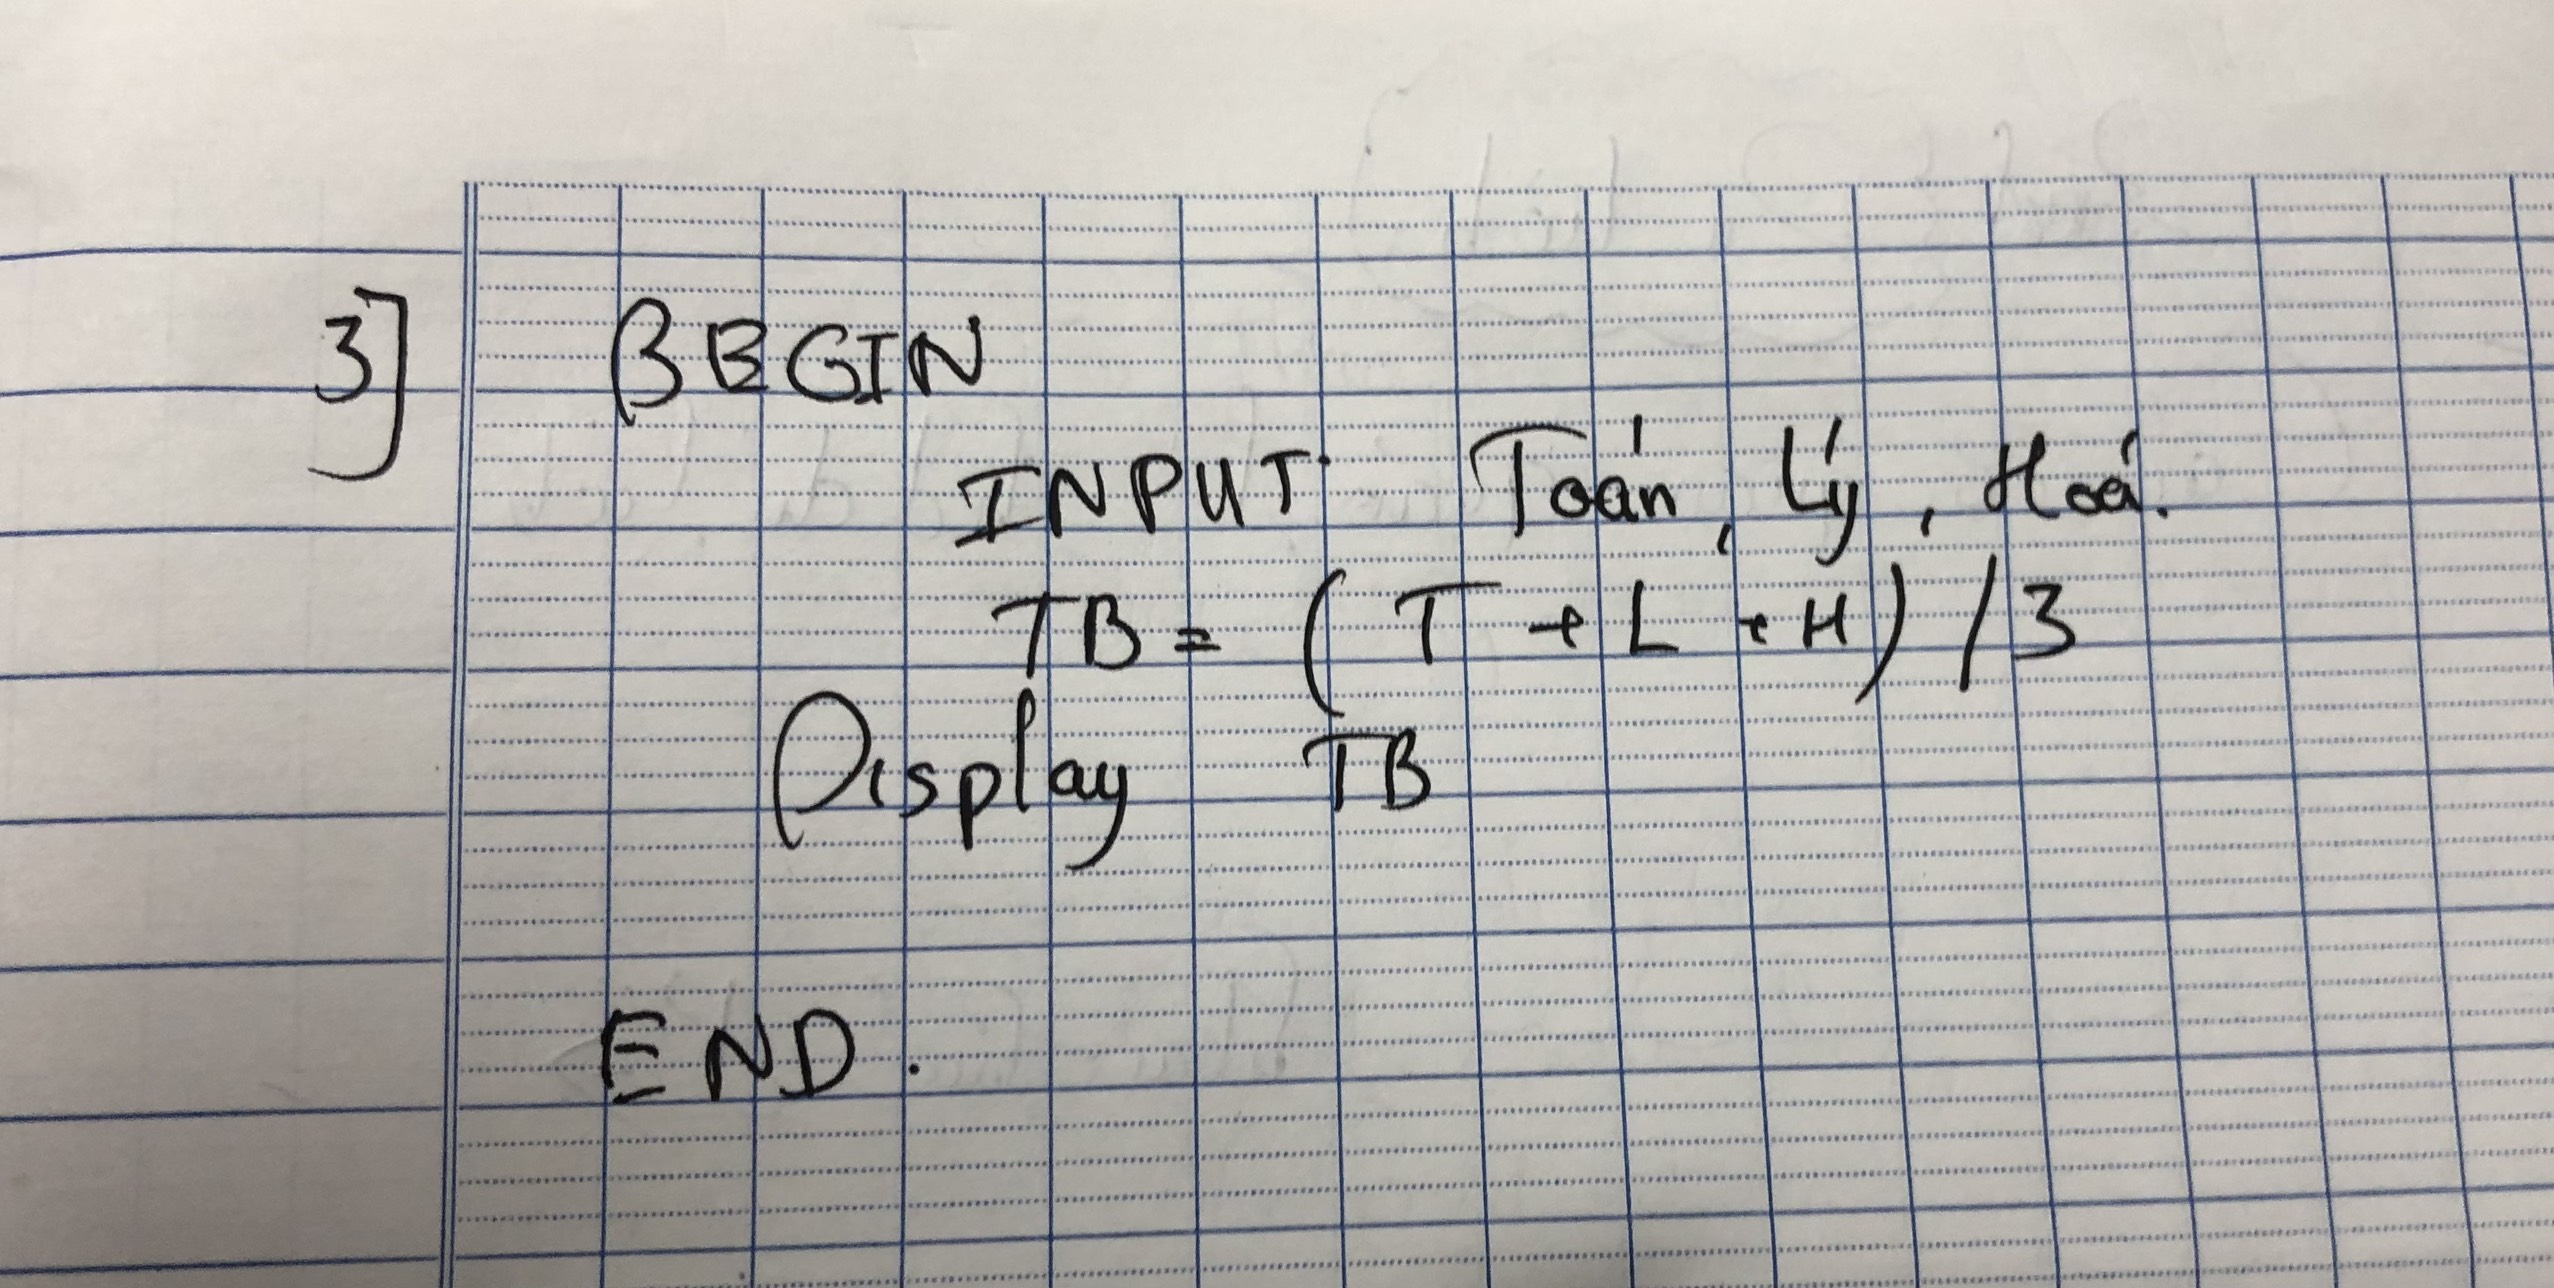 3] BEGIN
INPUT Toán, Lý, Hoá.
TB = (T + L + H) / 3
Display TB
END.